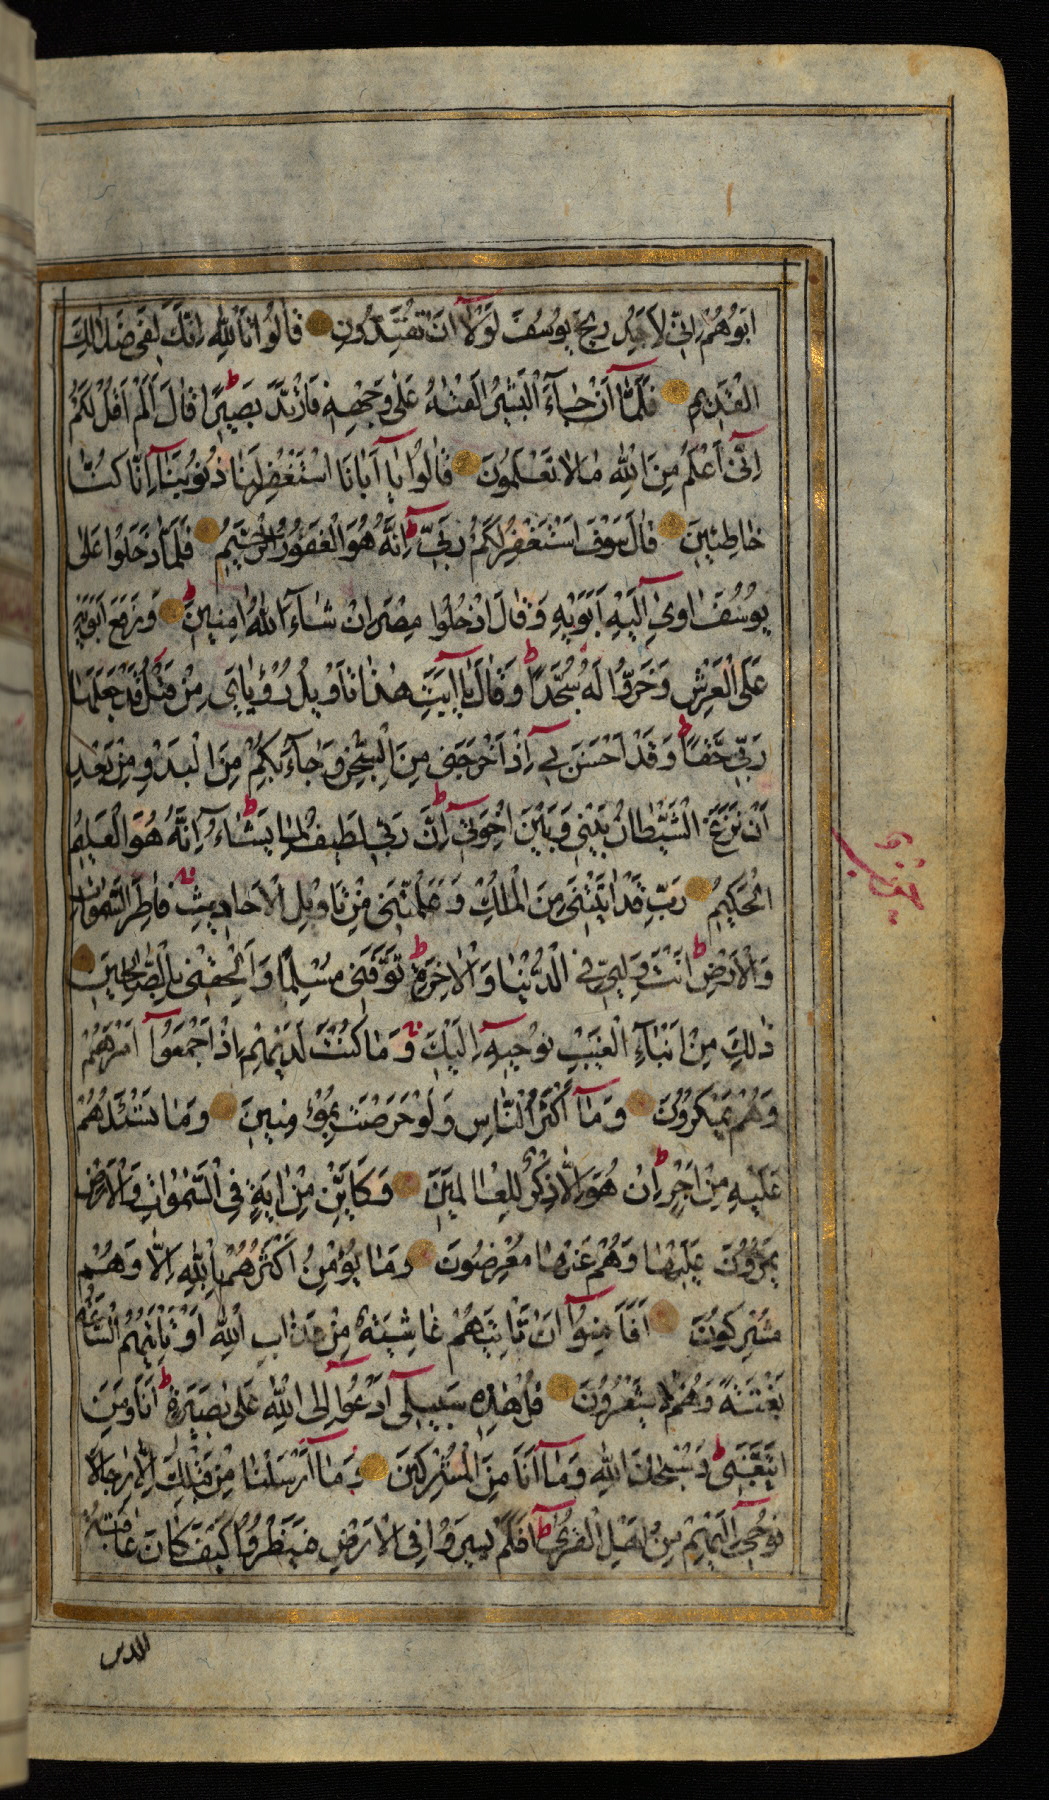 اَبُوهُمْ اِنّٖى لَاَجِدُ رٖيحَ يُوسُفَ لَوْلَاۤ اَنْ تُفَنِّدُونِ قَالُوا تَاللّٰهِ اِنَّكَ لَفٖى ضَلَالِكَ
الْقَدٖيمِ فَلَمَّاۤ اَنْ جَاۤءَ الْبَشٖيرُ اَلْقٰيهُ عَلٰى وَجْهِهٖ فَارْتَدَّ بَصٖيرًاۚ ط قَالَ اَلَمْ اَقُلْ لَكُمْ
اِنّٖىۤ اَعْلَمُ مِنَ اللّٰهِ مَا لَا تَعْلَمُونَ قَالُوا يَاۤ اَبَانَا اسْتَغْفِرْ لَنَا ذُنُوبَنَاۤ اِنَّا كُنَّا
خَاطِئٖينَ قَالَ سَوْفَ اَسْتَغْفِرُ لَكُمْ رَبّٖى ط اِنَّهُ هُوَ الْغَفُورُ الرَّحٖيمُ فَلَمَّا دَخَلُوا عَلٰى
يُوسُفَ اٰوٰىۤ اِلَيْهِ اَبَوَيْهِ وَقَالَ ادْخُلُوا مِصْرَ اِنْ شَاۤءَ اللّٰهُ اٰمِنٖينَ ط وَرَفَعَ اَبَوَيْهِ
عَلَى الْعَرْشِ وَخَرُّوا لَهُ سُجَّدًا ط وَقَالَ يَاۤ اَبَتِ هٰذَا تَاْوٖيلُ رُءْيَايَ مِنْ قَبْلُ قَدْ جَعَلَهَا
رَبّٖى حَقًّا ط وَقَدْ اَحْسَنَ بٖىۤ اِذْ اَخْرَجَنٖى مِنَ السِّجْنِ وَجَاۤءَ بِكُمْ مِنَ الْبَدْوِ مِنْ بَعْدِ
اَنْ نَزَغَ الشَّيْطَانُ بَيْنٖى وَبَيْنَ اِخْوَتٖىۤ ط اِنَّ رَبّٖى لَطٖيفٌ لِمَا يَشَاۤءُ ط اِنَّهُ هُوَ الْعَلٖيمُ
الْحَكٖيمُ رَبِّ قَدْ اٰتَيْتَنٖى مِنَ الْمُلْكِ وَعَلَّمْتَنٖى مِنْ تَاْوٖيلِ الْاَحَادٖيثِ فَاطِرَ السَّمٰوَاتِ
وَالْاَرْضِ ط اَنْتَ وَلِيّٖى فِى الدُّنْيَا وَالْاٰخِرَةِ ط تَوَفَّنٖى مُسْلِمًا وَاَلْحِقْنٖى بِالصَّالِحٖينَ
ذٰلِكَ مِنْ اَنْبَاۤءِ الْغَيْبِ نُوحٖيهِ اِلَيْكَ وَمَا كُنْتَ لَدَيْهِمْ اِذْ اَجْمَعُوۤا اَمْرَهُمْ
وَهُمْ يَمْكُرُونَ وَمَاۤ اَكْثَرُ النَّاسِ وَلَوْ حَرَصْتَ بِمُؤْمِنٖينَ وَمَا تَسْئَلُهُمْ
عَلَيْهِ مِنْ اَجْرٍ ط اِنْ هُوَ اِلَّا ذِكْرٌ لِلْعَالَمٖينَ وَكَاَيِّنْ مِنْ اٰيَةٍ فِى السَّمٰوَاتِ وَالْاَرْضِ
يَمُرُّونَ عَلَيْهَا وَهُمْ عَنْهَا مُعْرِضُونَ وَمَا يُؤْمِنُ اَكْثَرُهُمْ بِاللّٰهِ اِلَّا وَهُمْ
مُشْرِكُونَ اَفَاَمِنُوۤا اَنْ تَاْتِيَهُمْ غَاشِيَةٌ مِنْ عَذَابِ اللّٰهِ اَوْ تَاْتِيَهُمُ السَّاعَةُ
بَغْتَةً وَهُمْ لَا يَشْعُرُونَ قُلْ هٰذِهٖ سَبٖيلٖىۤ اَدْعُوۤا اِلَى اللّٰهِ عَلٰى بَصٖيرَةٍ ط اَنَا وَمَنِ
اتَّبَعَنٖى ط وَسُبْحَانَ اللّٰهِ وَمَاۤ اَنَا مِنَ الْمُشْرِكٖينَ وَمَاۤ اَرْسَلْنَا مِنْ قَبْلِكَ اِلَّا رِجَالًا
نُوحٖىۤ اِلَيْهِمْ مِنْ اَهْلِ الْقُرٰى ط اَفَلَمْ يَسٖيرُوا فِى الْاَرْضِ فَيَنْظُرُوا كَيْفَ كَانَ عَاقِبَةُ
الذين